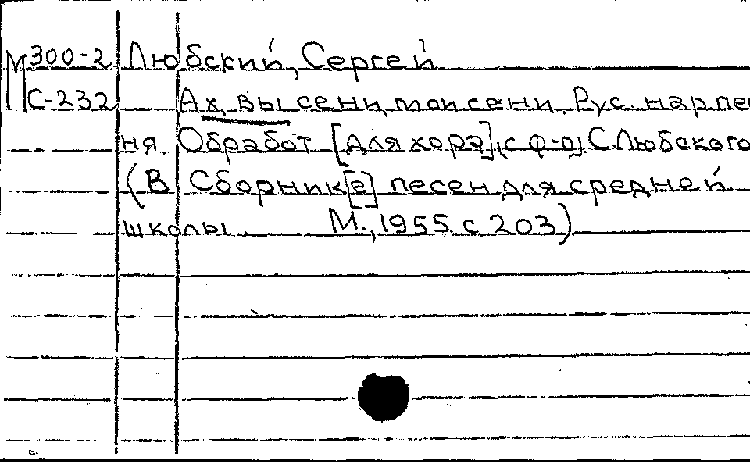 М 300-2 Любский, Сергей
С-232 Ах, вы сени, мои сени. Рус. нар. пе
ня. Обработ [для хора] с ф-о, С. Любского
(В Сборник[е] песен для средней
школы. М., 1955. с 203)